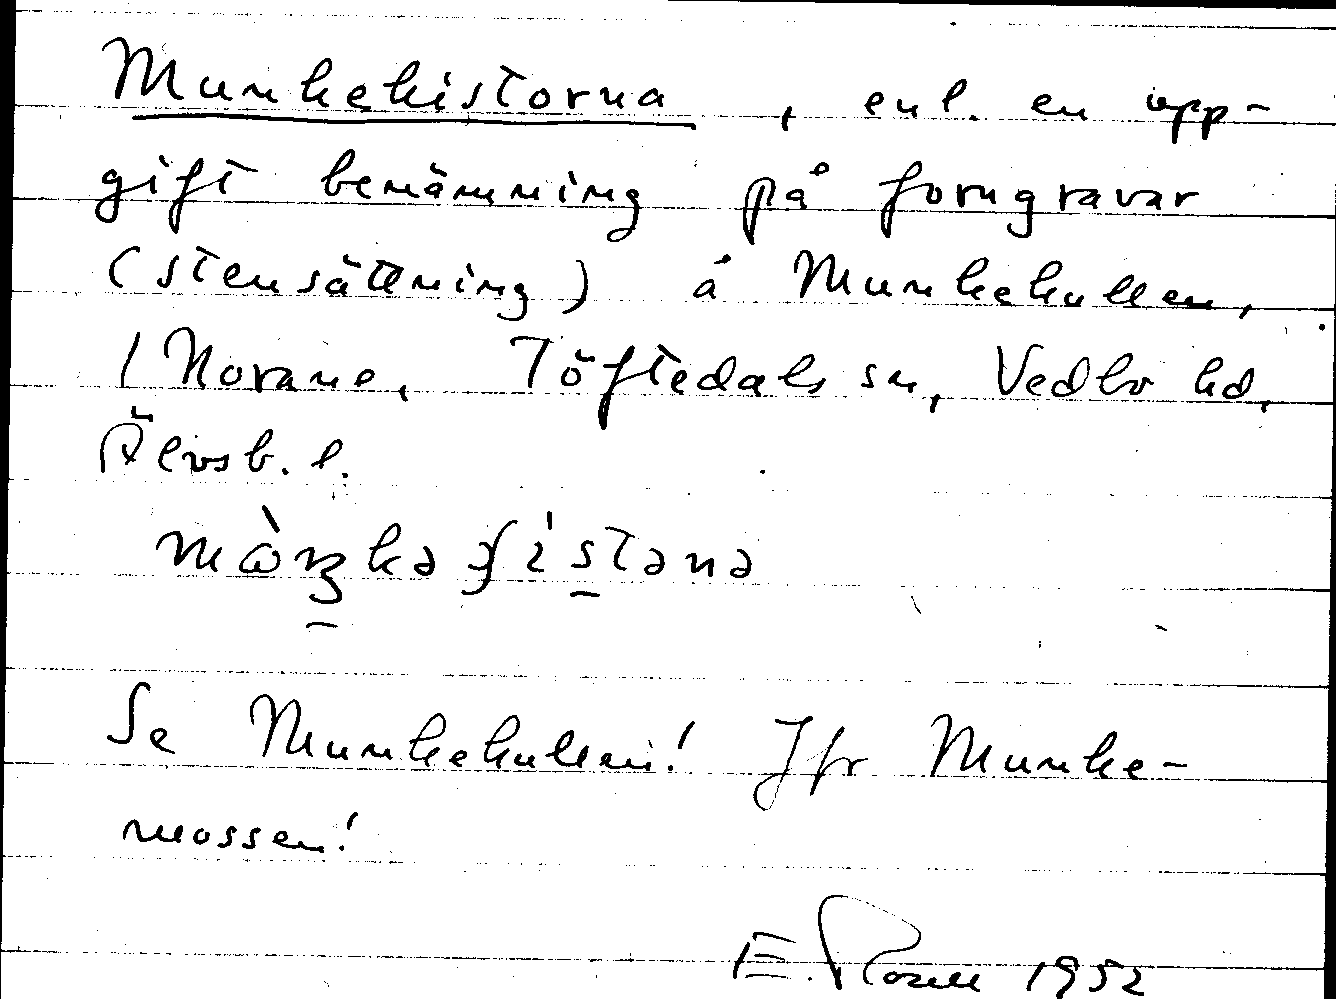 Munkekistorna, enl. en upp-
gift benämning på forngravar
(stensättning) å Munkekullen,
1 Norane, Töftedals sn, Vedbo hd,
Älvsb. l.
Se Munkekullen! Jfr Munke-
mossen!
E. Rosell 1952